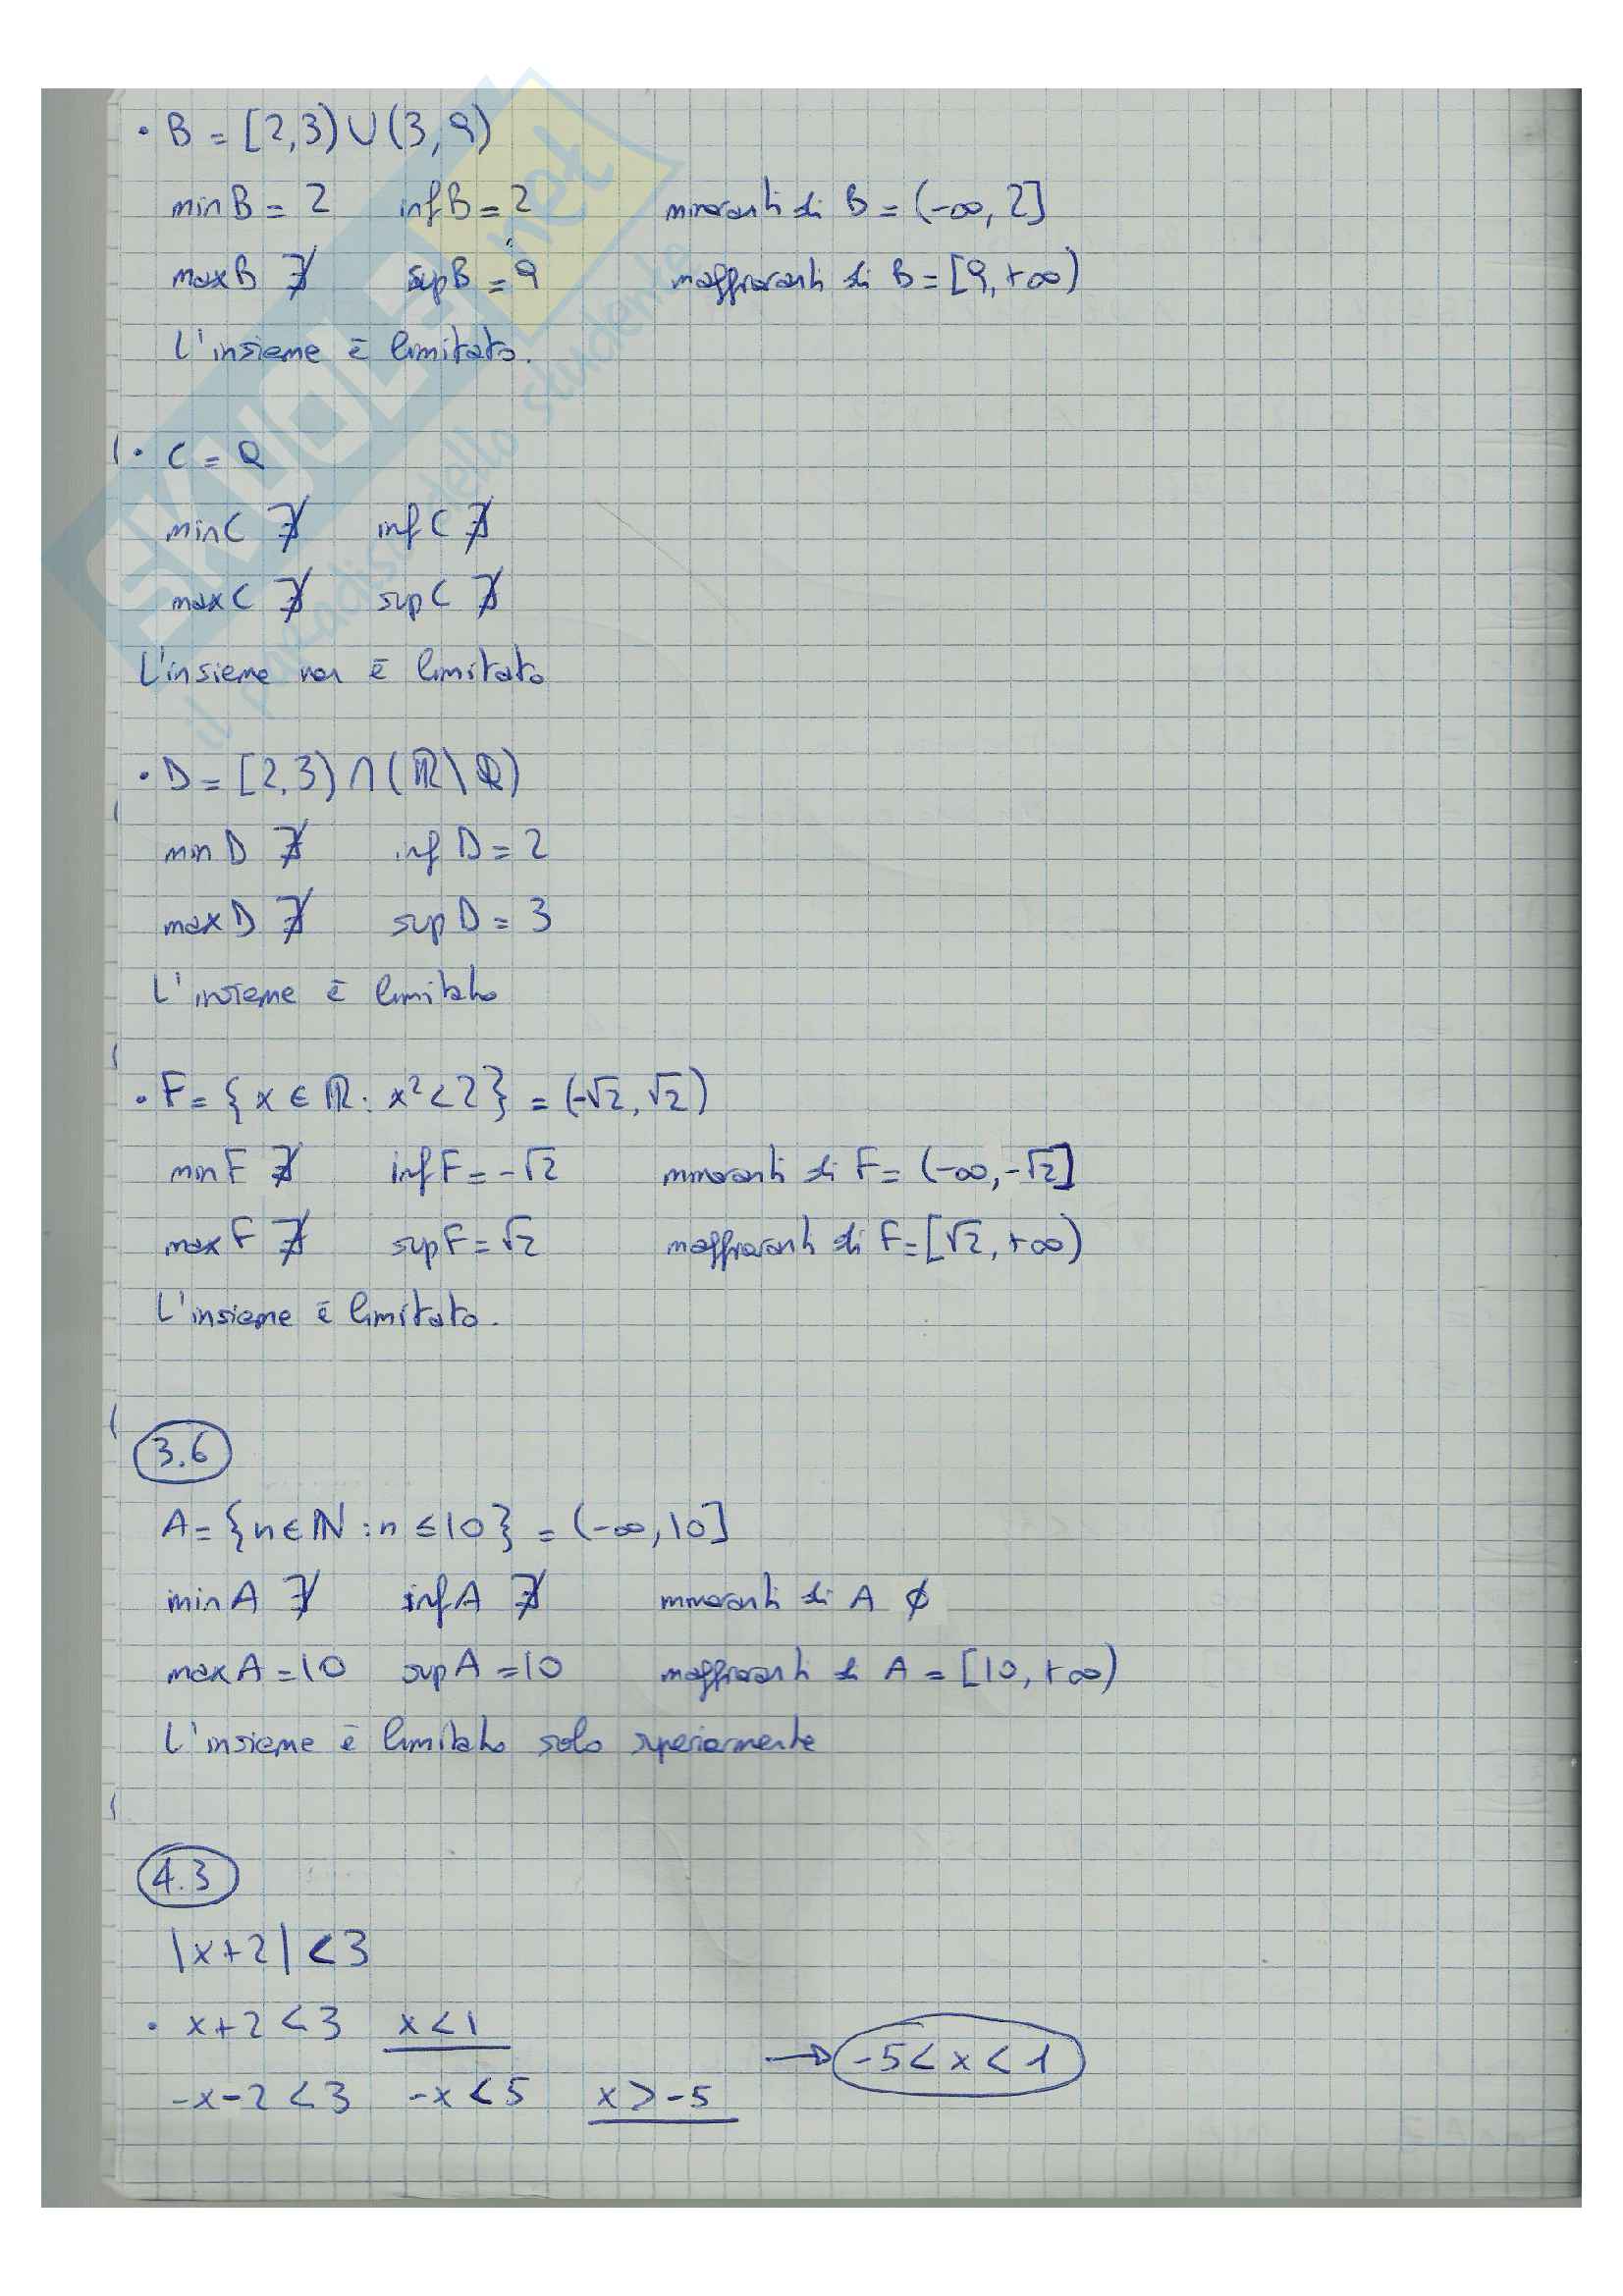 • B = [2,3) ∪ (3,9)
min B = 2 inf B = 2 minoranti di B = (-∞, 2]
max B ∄ sup B = 9 maggioranti di B = [9, +∞)
L'insieme è limitato.
• C = Q
min C ∄ inf C ∄
max C ∄ sup C ∄
L'insieme non è limitato
• D = [2,3) ∩ (ℝ \ ℚ)
min D ∄ inf D = 2
max D ∄ sup D = 3
L'insieme è limitato
• F = {x ∈ ℝ : x² < 2} = (-√2, √2)
min F ∄ inf F = -√2 minoranti di F = (-∞, -√2]
max F ∄ sup F = √2 maggioranti di F = [√2, +∞)
L'insieme è limitato.
3.6
A = {n ∈ ℕ : n ≤ 10} = (-∞, 10]
min A ∄ inf A ∄ minoranti di A ∅
max A = 10 sup A = 10 maggioranti di A = [10, +∞)
L'insieme è limitato solo superiormente
4.3
|x+2| < 3
• x+2 < 3 x < 1
→ -5 < x < 1
-x-2 < 3 -x < 5 x > -5
SKUOLA.net
il paradiso dello studente